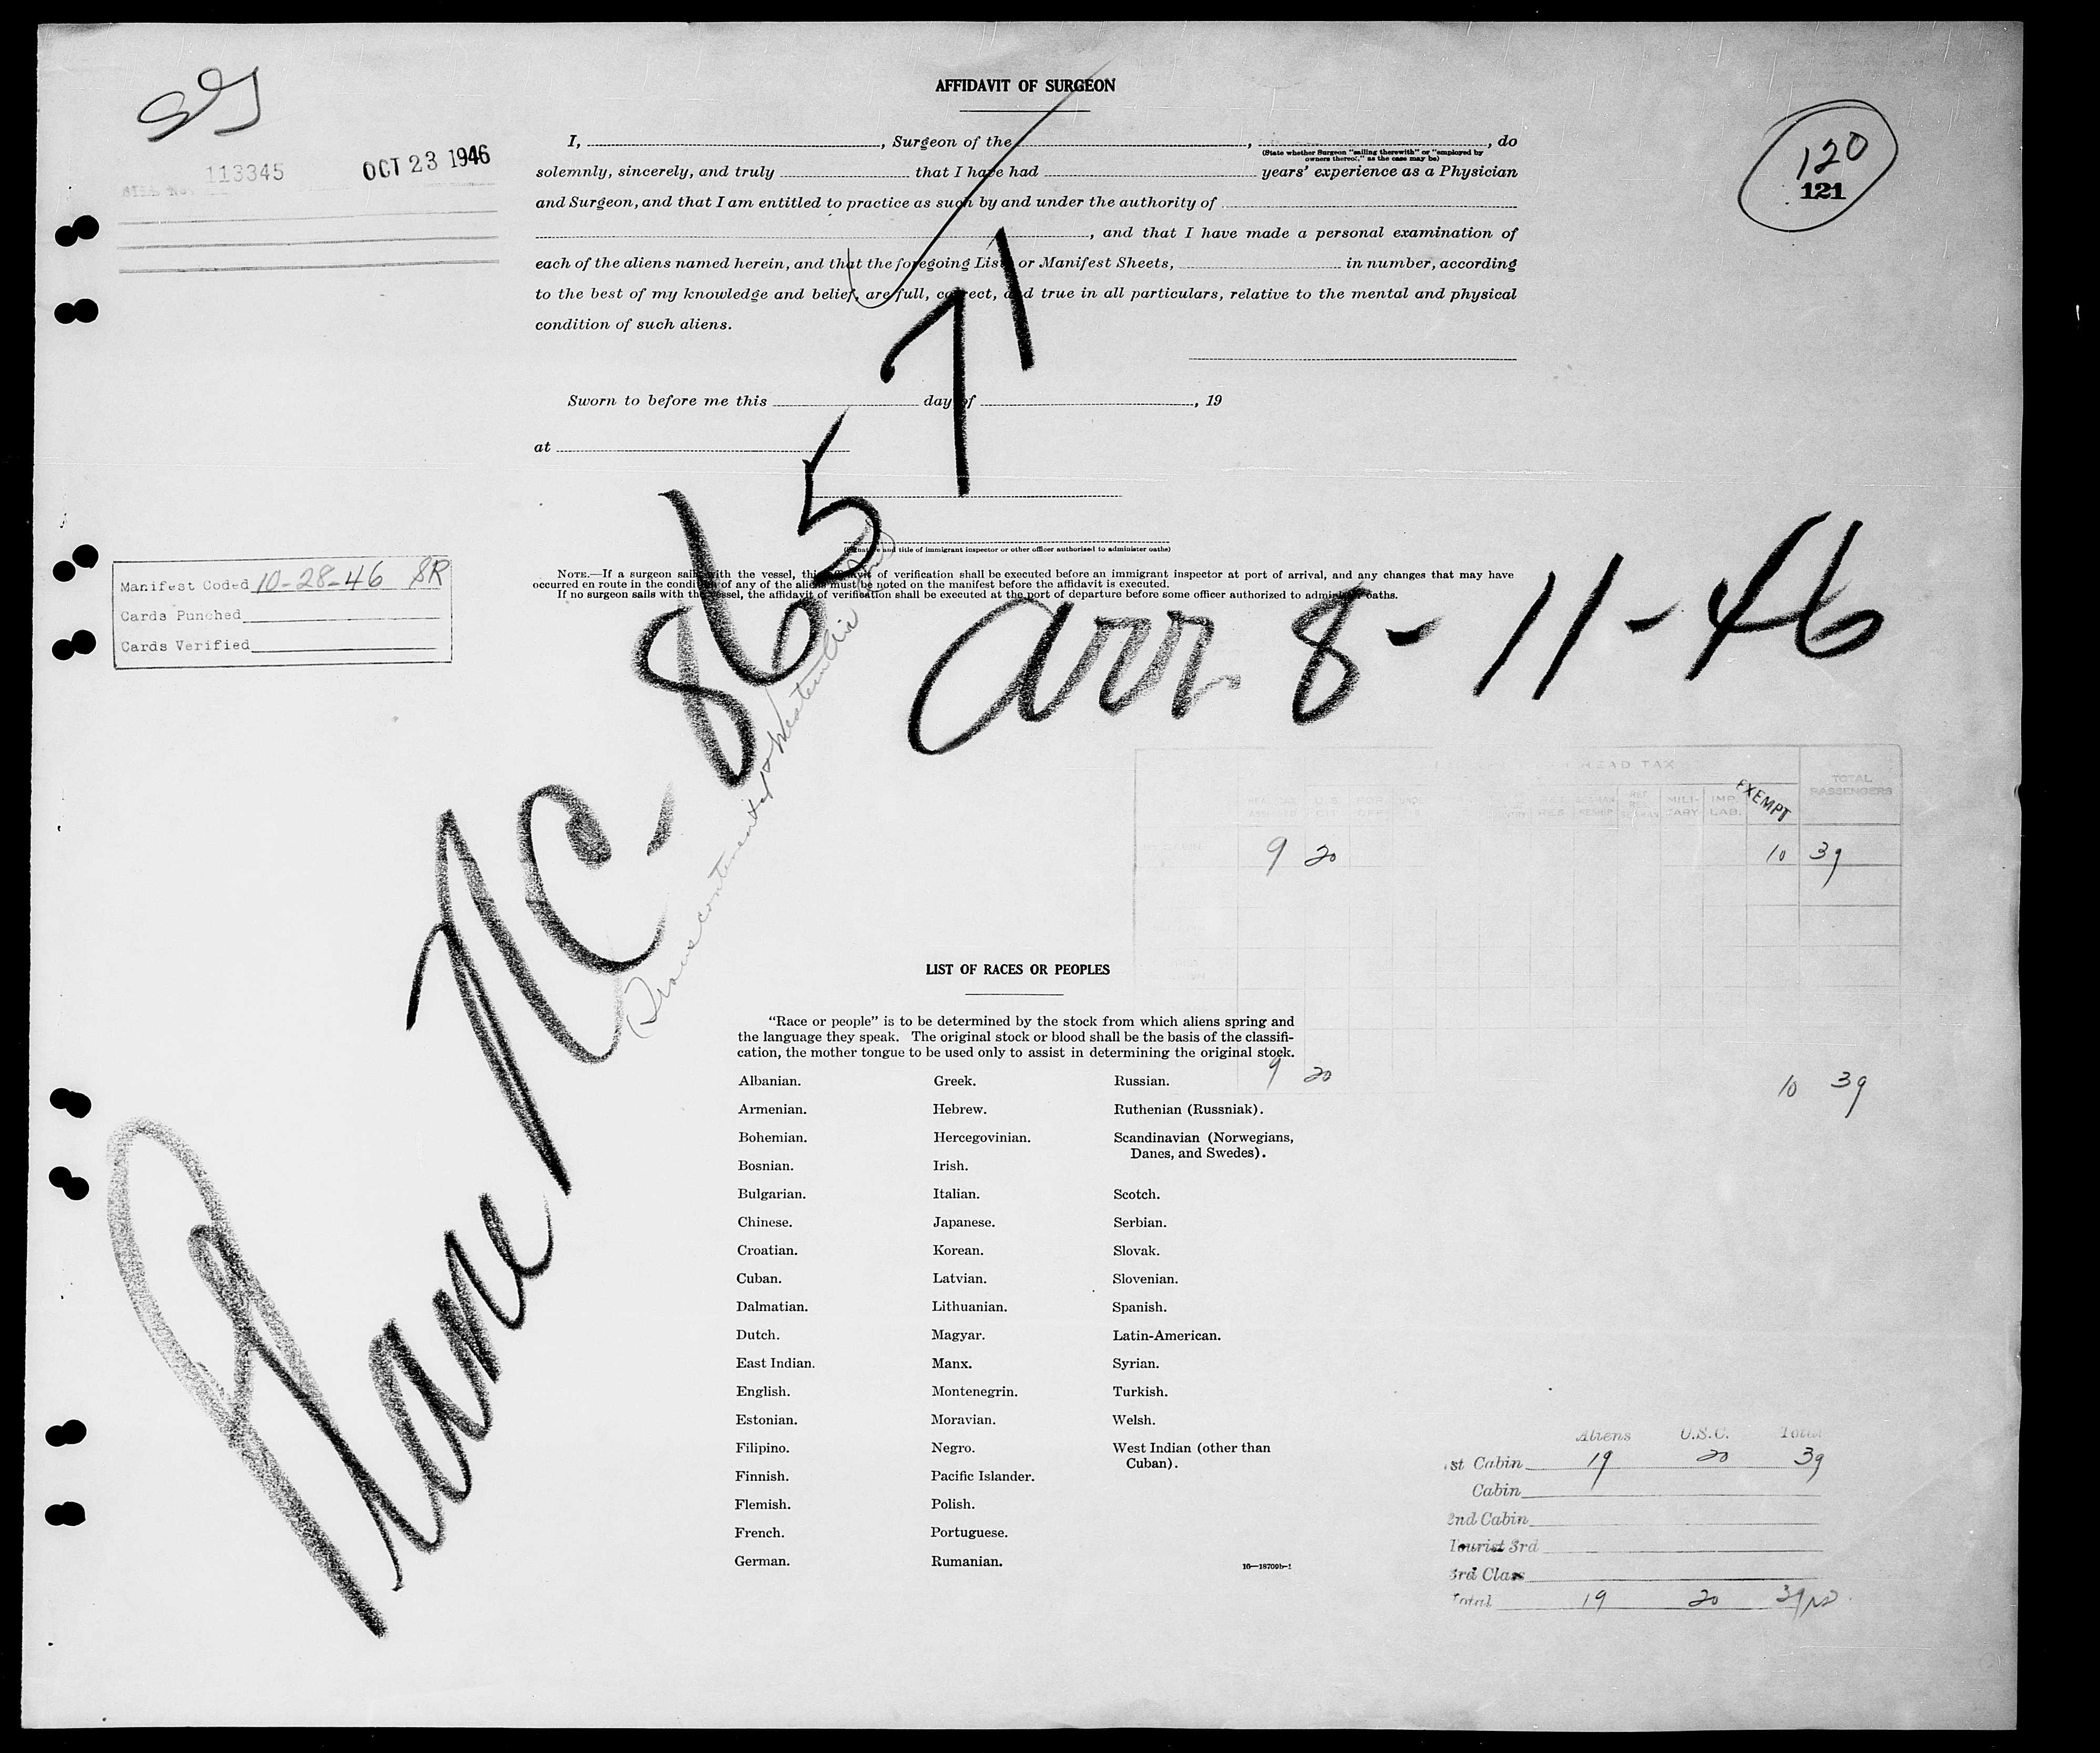 AFFIDAVIT OF SURGEON
120
121
113345
OCT 23 1946
I, , Surgeon of the , , do
(State whether Surgeon "sailing therewith" or "employed by
owners thereof," as the case may be)
solemnly, sincerely, and truly that I have had years' experience as a Physician
and Surgeon, and that I am entitled to practice as such by and under the authority of
, and that I have made a personal examination of
each of the aliens named herein, and that the foregoing Lists or Manifest Sheets, in number, according
to the best of my knowledge and belief, are full, correct, and true in all particulars, relative to the mental and physical
condition of such aliens.
Sworn to before me this day of , 19
at
(Signature and title of immigrant inspector or other officer authorized to administer oaths)
NOTE.—If a surgeon sails with the vessel, this affidavit of verification shall be executed before an immigrant inspector at port of arrival, and any changes that may have
occurred en route in the condition of any of the aliens must be noted on the manifest before the affidavit is executed.
If no surgeon sails with the vessel, the affidavit of verification shall be executed at the port of departure before some officer authorized to administer oaths.
Manifest Coded 10-28-46 SR
Cards Punched
Cards Verified
Plane NC-86571
Transcontinental & Western Air
arr 8-11-46
HEAD TAX
U.S. CIT. MILI-TARY IMP. LAB. EXEMPT TOTAL PASSENGERS
9 20 10 39
9 20 10 39
LIST OF RACES OR PEOPLES
"Race or people" is to be determined by the stock from which aliens spring and
the language they speak. The original stock or blood shall be the basis of the classifi-
cation, the mother tongue to be used only to assist in determining the original stock.
Albanian. Greek. Russian.
Armenian. Hebrew. Ruthenian (Russniak).
Bohemian. Hercegovinian. Scandinavian (Norwegians,
Danes, and Swedes).
Bosnian. Irish.
Bulgarian. Italian. Scotch.
Chinese. Japanese. Serbian.
Croatian. Korean. Slovak.
Cuban. Latvian. Slovenian.
Dalmatian. Lithuanian. Spanish.
Dutch. Magyar. Latin-American.
East Indian. Manx. Syrian.
English. Montenegrin. Turkish.
Estonian. Moravian. Welsh.
Filipino. Negro. West Indian (other than
Cuban).
Finnish. Pacific Islander.
Flemish. Polish.
French. Portuguese.
German. Rumanian.
16—18709b-1
Aliens U.S.C. Total
1st Cabin 19 20 39
Cabin
2nd Cabin
Tourist 3rd
3rd Class
Total 19 20 39